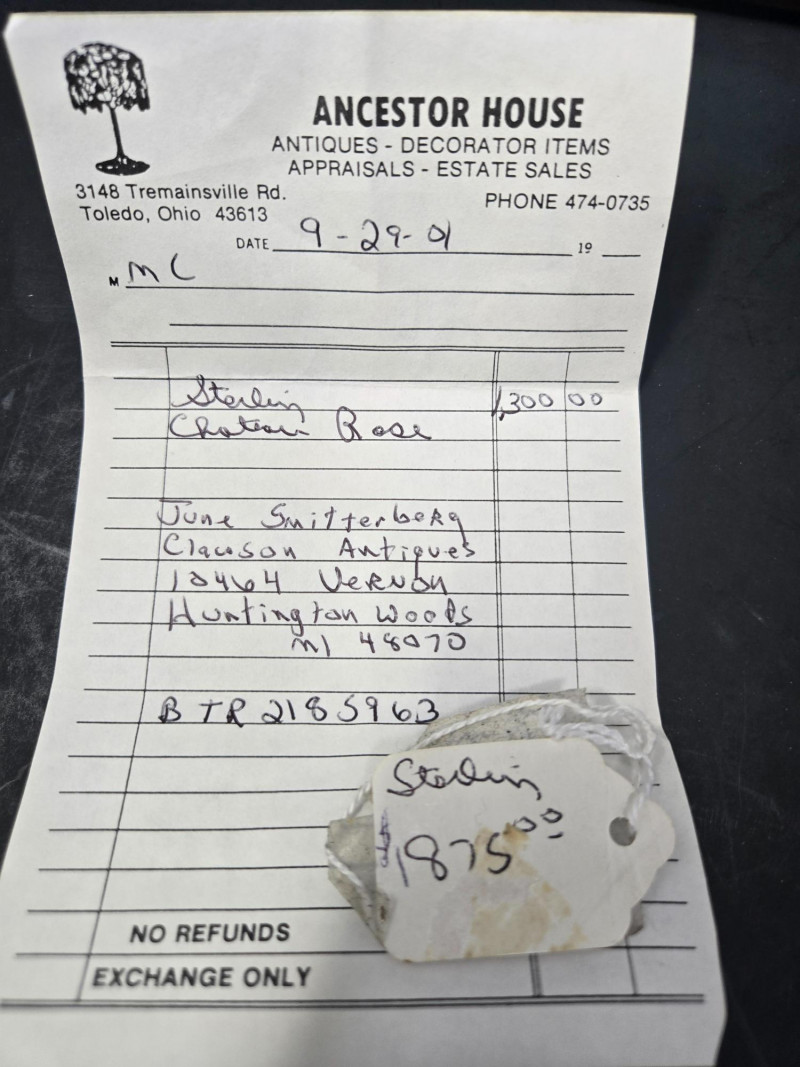 ANCESTOR HOUSE
ANTIQUES - DECORATOR ITEMS
APPRAISALS - ESTATE SALES
3148 Tremainsville Rd.
Toledo, Ohio 43613
PHONE 474-0735
DATE 9-29-01 19
M MC
Sterling 1,300 00
Chateau Rose
June Smitterberg
Clawson Antiques
10464 Vernon
Huntington Woods
MI 48070
BTR 2185963
Sterling
1875 00
NO REFUNDS
EXCHANGE ONLY